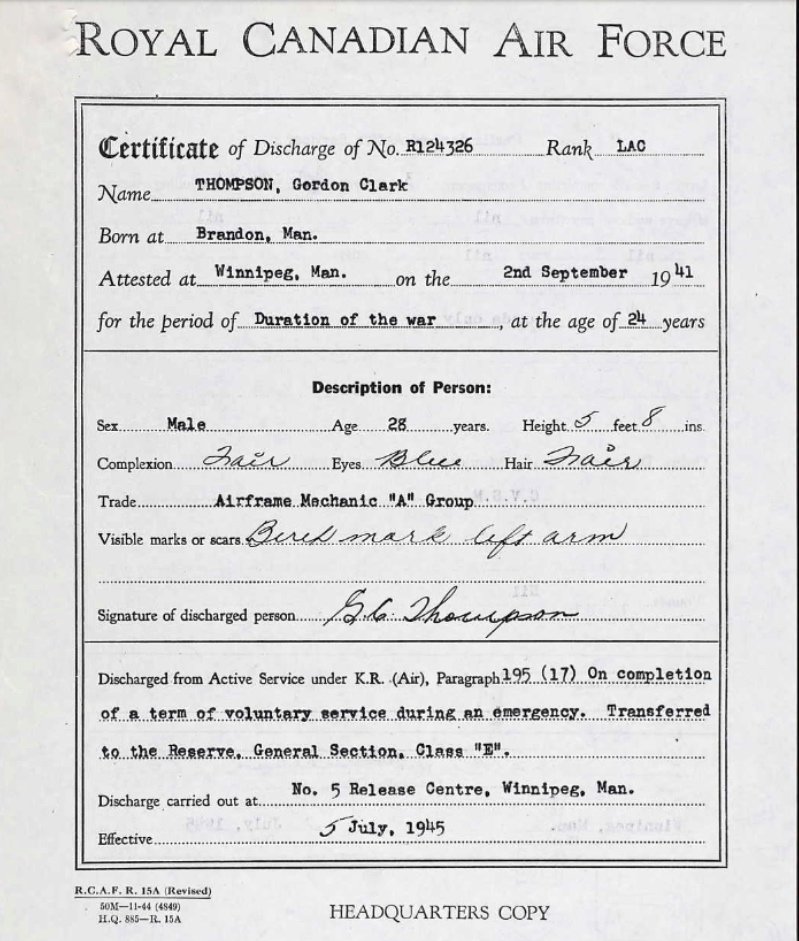 ROYAL CANADIAN AIR FORCE
Certificate of Discharge of No. R124326 Rank LAC
Name THOMPSON, Gordon Clark
Born at Brandon, Man.
Attested at Winnipeg, Man. on the 2nd September 1941
for the period of Duration of the war, at the age of 24 years
Description of Person:
Sex Male Age 28 years. Height 5 feet 8 ins.
Complexion Fair Eyes Blue Hair Fair
Trade Airframe Mechanic "A" Group
Visible marks or scars. mark left arm
Signature of discharged person G.C. Thompson
Discharged from Active Service under K.R. (Air), Paragraph 195 (17) On completion
of a term of voluntary service during an emergency. Transferred
to the Reserve, General Section, Class "E".
Discharge carried out at No. 5 Release Centre, Winnipeg, Man.
Effective 5 July, 1945
R.C.A.F. R. 15A (Revised)
50M—11-44 (4849)
H.Q. 885—R. 15A
HEADQUARTERS COPY